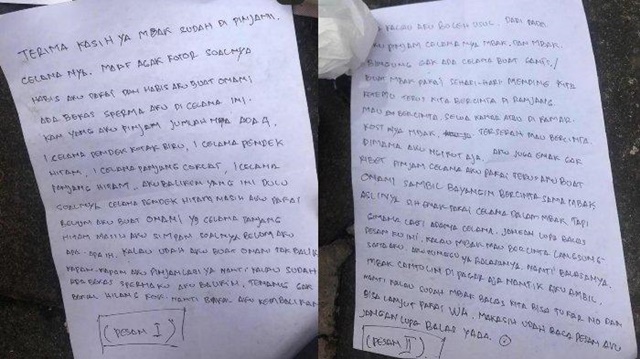 TERIMA KASIH YA MBAK SUDAH DI PINJAMI
CELANA NYA. MAAF AGAK KOTOR SOALNYA
HABIS AKU PAKAI DAN HABIS AKU BUAT ONANI
ADA BEKAS SPERMA AKU DI CELANA INI.
KAN YANG AKU PINJAM JUMLAH NYA ADA 4
1 CELANA PENDEK KOTAK BIRU, 1 CELANA PENDEK
HITAM, 1 CELANA PANJANG COKLAT, 1 CELANA
PANJANG HITAM. AKU BALIKIN YANG INI DULU
SOALNYA CELANA PENDEK HITAM MASIH AKU PAKAI
BELUM AKU BUAT ONANI YG CELANA PANJANG
HITAM MASIH AKU SIMPAN SOALNYA BELUM AKU
APA-APA IN. KALAU UDAH AKU BUAT ONANI TAK BALIK
KAPAN-KAPAN AKU PINJAM LAGI YA NANTI KALAU SUDAH
ADA BEKAS SPERMAKU AKU BALIKIN, TENANG GAK
BAKAL HILANG KOK. NANTI BAKAL AKU KEMBALIKAN
(PESAN I)
KALAU AKU BOLEH USUL. DARI PADA
PINJAM CELANA NYA MBAK, DAN MBAK
BINGUNG GAK ADA CELANA BUAT GANTI/
BUAT MBAK PAKAI SEHARI-HARI MENDING KITA
KETEMU TERUS KITA BERCINTA DI RANJANG
MAU BERCINTA, SEWA KAMAR ATAU DI KAMAR
KOST NYA MBAK, TERSERAH MAU BERCINTA
DIMANA AKU NGIKUT AJA. AKU JUGA ENAK GAK
RIBET PINJAM CELANA AKU PAKAI TERUS AKU BUAT
ONANI SAMBIL BAYANGIN BERCINTA SAMA MBAK
ASLINYA SIH ENAK PAKAI CELANA DALAM MBAK TAPI
GIMANA LAGI ADANYA CELANA. JANGAN LUPA BALAS
PESAN KU INI. KALAU MBAK MAU BERCINTA LANGSUNG
SAMA AKU AKU TUNGGU YA BALASANNYA. NANTI BALASANNYA
MBAK CANTOLIN DI PAGAR AJA NANTI AKU AMBIL.
NANTI KALAU SUDAH MBAK BALAS KITA BISA TUKAR NO DAN
BISA LANJUT PAKAI WA. MAKASIH UDAH BACA PESAN AKU
JANGAN LUPA BALAS YADA.
(PESAN II)